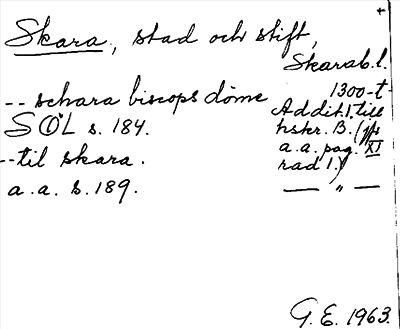 Skara, stad och stift,
Skarab. l.
-- schara biscops döme
SÖL s. 184.
1300-t
Addit. 1. till
hskr. B. (jfr
a.a. pag. XI
rad 1.)
-- til skara.
a.a. s. 189.
— „ —
G. E. 1963.